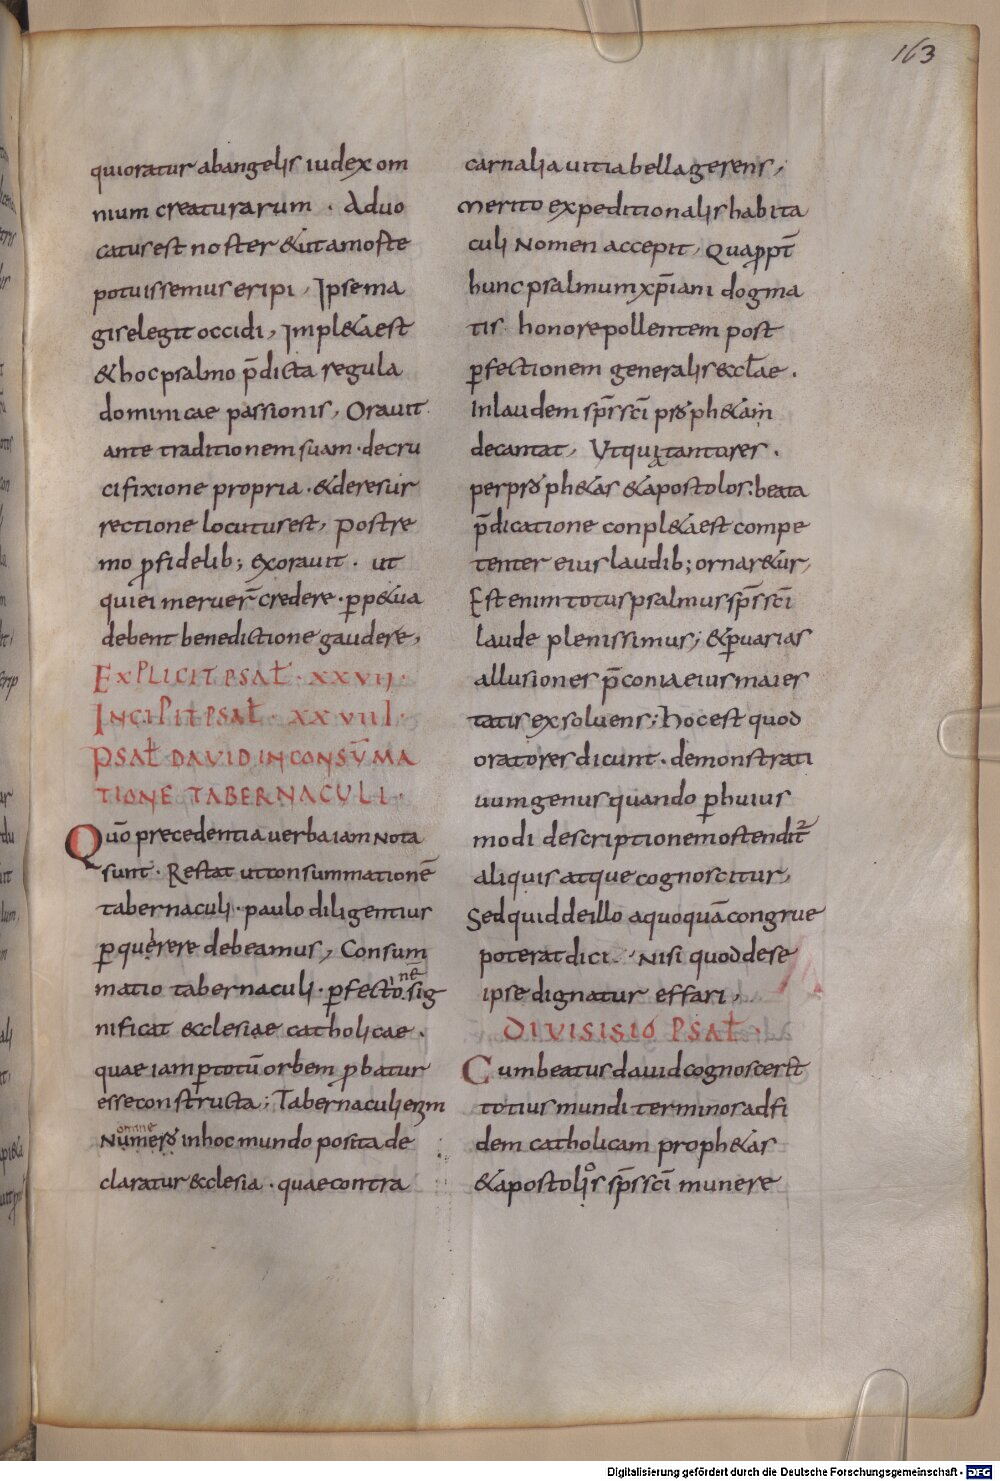 163
quioratur abangelis iudex om
nium creaturarum . Aduo
catus est noster &ut a moste
potuissemus eripi, Ipse ma
gis elegit occidi, Impl&a est
& hoc psalmo p̄dicta regula
dominicae passionis, Orauit
ante traditionem suam · decru
cifixione propria . & deresur
rectione locutus est, Postre
mo ꝓ fidelib; exorauit . ut
qui ei meruer̄ credere . ꝑp&ua
debent benedictione gaudere,
EXPLICIT PSAꝆ · XXVII ·
INCIPIT PSAꝆ · XXVIII ·
PSAꝆ DAVID IN CONSŪMA
TIONE TABERNACULI ·
Quō precedentia uerba iam nota
sunt . Restat ut consummationē
tabernaculi . paulo diligentius
ꝑquęrere debeamus, Consum
matio tabernaculi . ꝑfectionē sig
nificat ecclesiae catholicae .
quae iam ꝑ totū orbem ꝓbatur
esse constructa; Tabernaculi enim
nomine numero in hoc mundo posita de
claratur ecclesia . quae contra
carnalia uitia bella gerens,
merito expeditionalis habita
culi nomen accepit, Quapropt̄
hunc psalmum xp̄iani dogma
tis honore pollentem post
ꝑfectionem generalis ecclae .
In laudem sp̄s sc̄i proph&a in
decantat, Ut qui tantū res .
per proph&as & apostolos . beata
p̄dicatione conpl&a est compe
tenter eius laudib; ornar&ur,
Est enim totus psalmus sp̄s sc̄i
laude plenissimus; & ꝑ uarias
allusiones p̄conia eius maies
tatis exsoluens; Hoc est quod
oratores dicunt . demonstrati
uum genus quando ꝑ huius
modi descriptionem ostenditur
aliquis atque cognoscitur,
Sed quid de illo a quoquā congrue
poterat dici . nisi quod de se
ipse dignatur effari,
DIVISISIO PSAꝆ ·
Cum beatus dauid cognoscerst
totius mundi terminos ad fi
dem catholicam proph&as
& apostolos sp̄s sc̄i munere
Digitalisierung gefördert durch die Deutsche Forschungsgemeinschaft - DFG